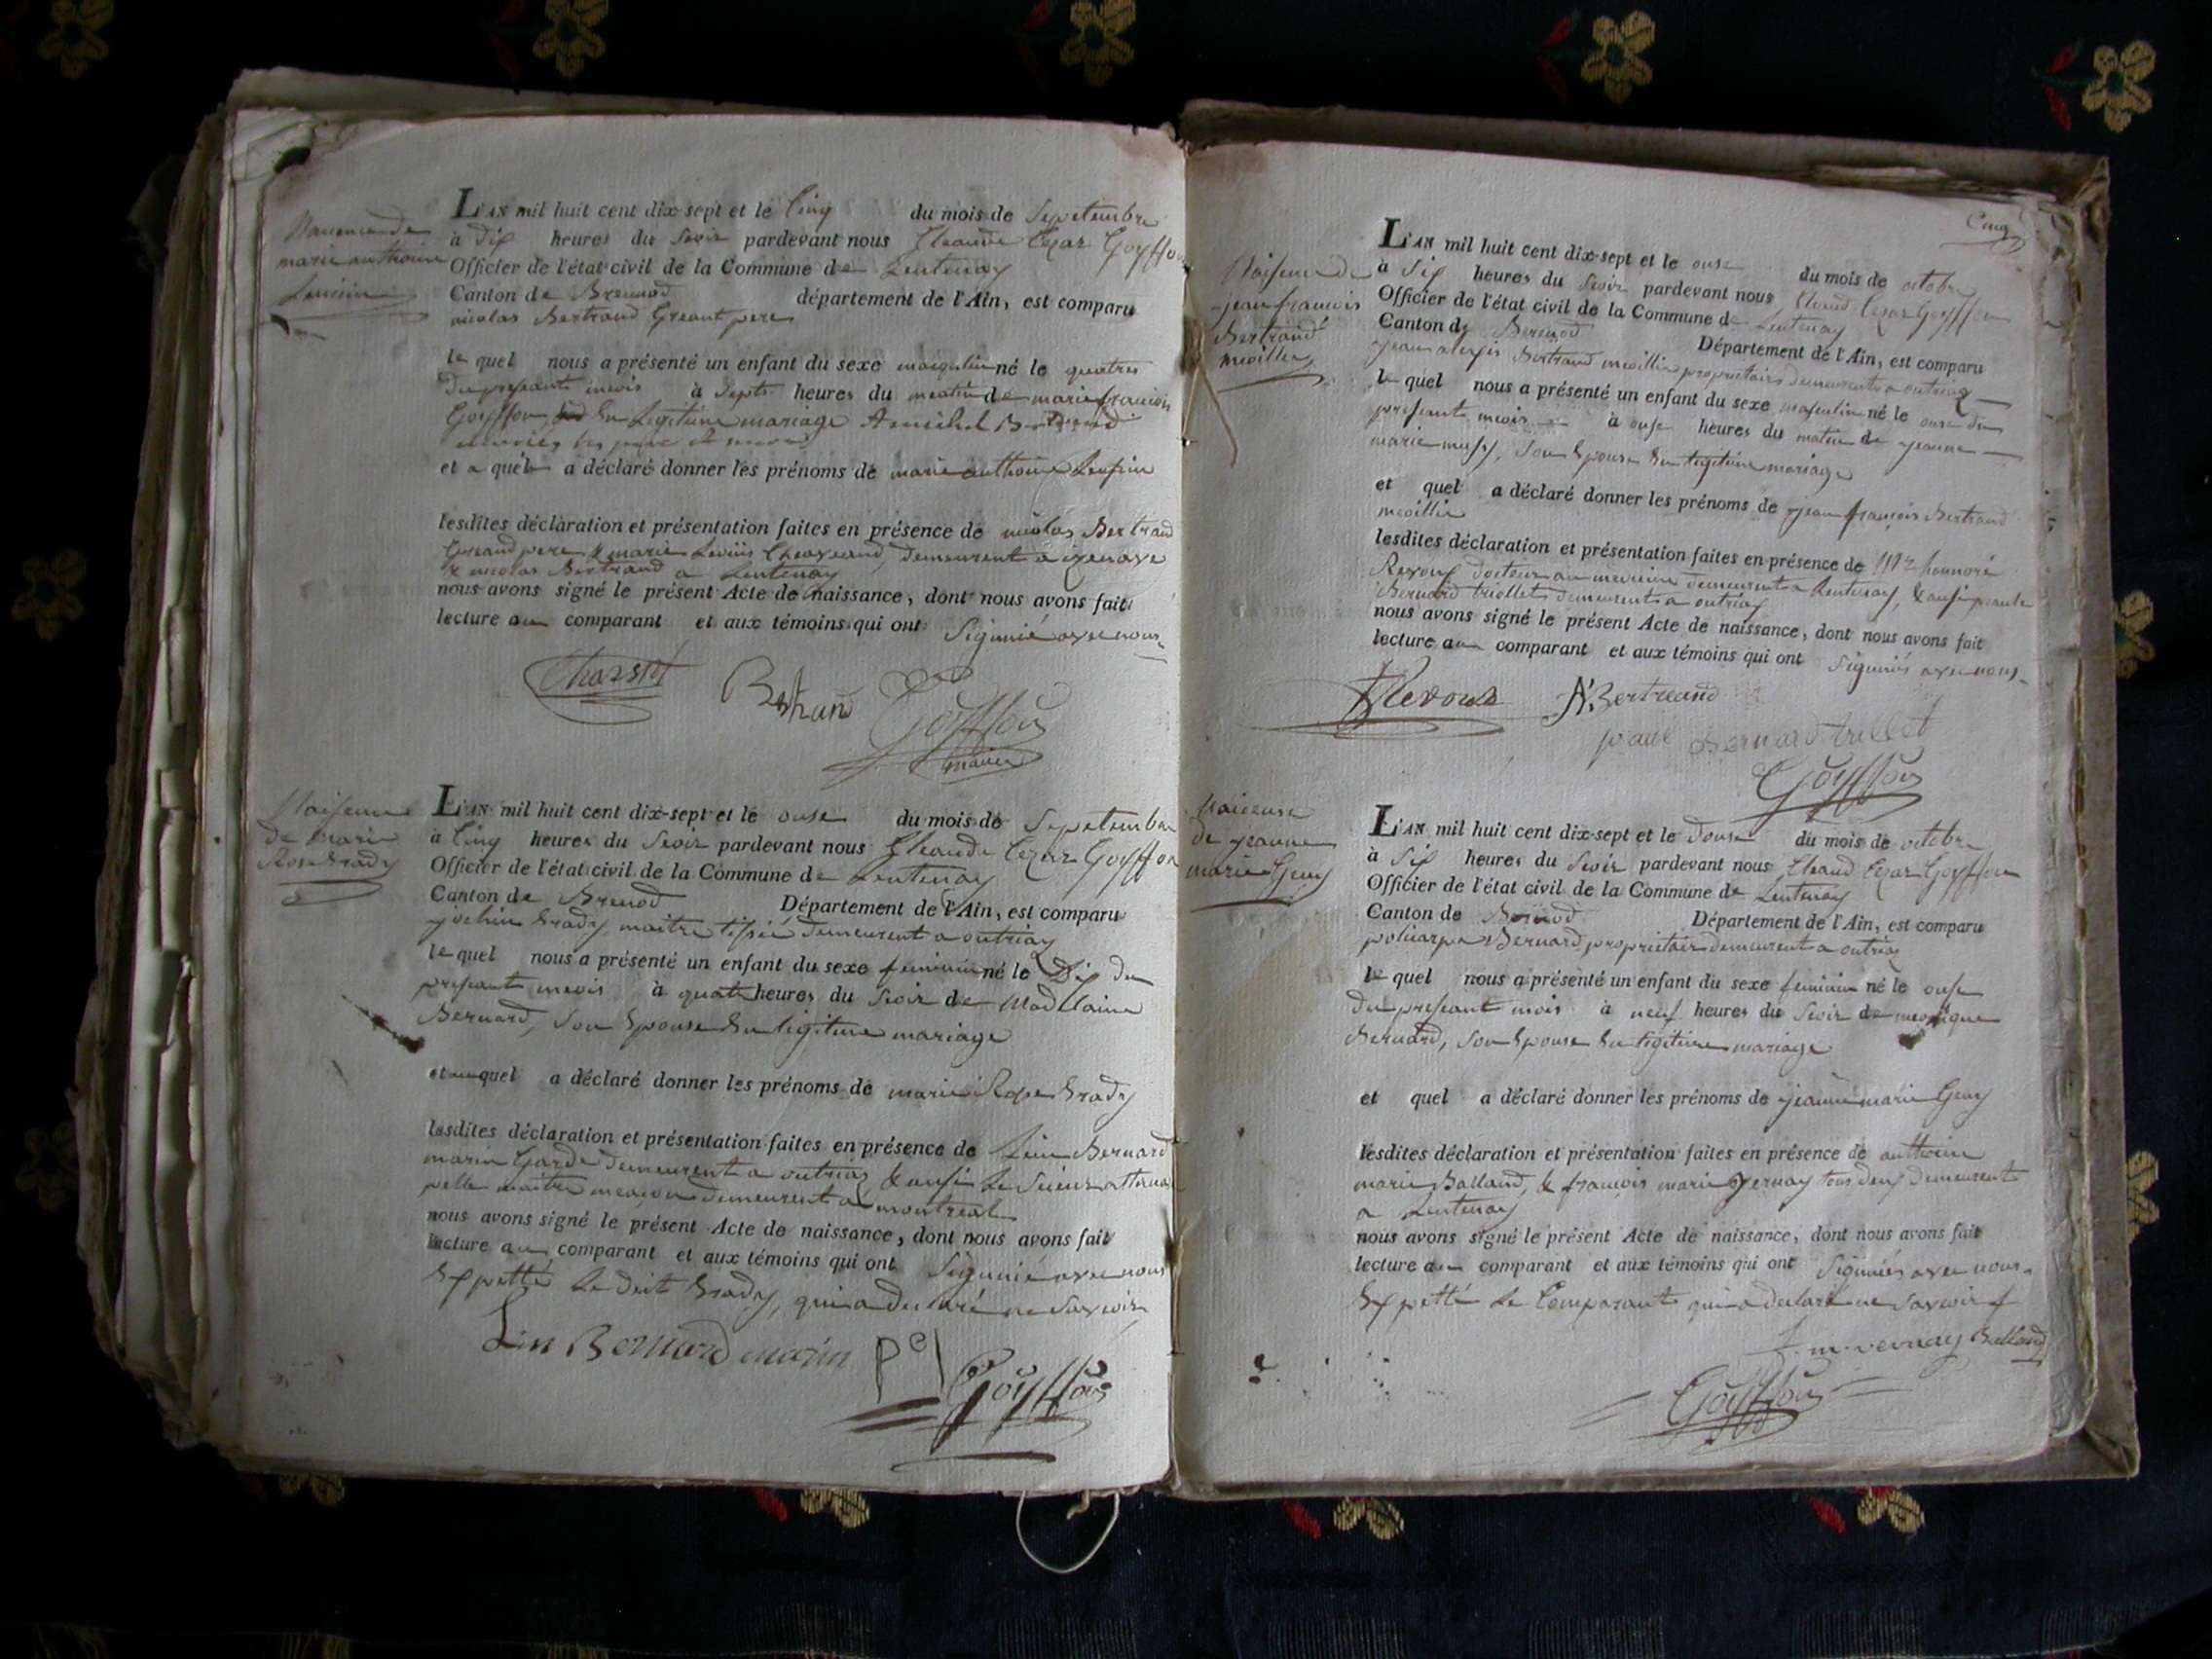 Naissence de
marie anthoine
L'AN mil huit cent dix-sept et le Cinq du mois de Sepetembre
à dix heures du Soir pardevant nous Cleaude Cezar Goyffon
Officier de l'état civil de la Commune de Lentenay
Canton de Brenod département de l'Ain, est comparu
nicolas Bertrand Greant pere
le quel nous a présenté un enfant du sexe masqulin né le quatres
du presant mois à Septs heures du matin de marie francois
Goyffon en Legitime mariage
et a quel a déclaré donner les prénoms de marie anthoine
lesdites déclaration et présentation faites en présence de nicolas Bertrand
Greand pere & marie demeurent a izenave
& nicolas Bertrand a Lentenay
nous avons signé le présent Acte de naissance, dont nous avons fait
lecture au comparant et aux témoins qui ont Signié avec nous
Bertrand Goyffon
maire
Naisence
de marie
Rose Brady
L'AN mil huit cent dix-sept et le onse du mois de Sepetembre
à Cinq heures du Soir pardevant nous Cleaude Cezar Goyffon
Officier de l'état civil de la Commune de Lentenay
Canton de Brenod Département de l'Ain, est comparu
Brady maitre demeurent a outriaz
le quel nous a présenté un enfant du sexe feminin né le Dix du
presant mois à quatre heures du Soir de Madelaine
Bernard, Son Epouse En legitime mariage
et auquel a déclaré donner les prénoms de marie Rose Brady
lesdites déclaration et présentation faites en présence de Lin Bernard
marin Garde demeurent a outriaz & ausi Le Sieur
pelle maitre demeurent a montreal
nous avons signé le présent Acte de naissance, dont nous avons fait
lecture au comparant et aux témoins qui ont Signié avec nous
Expetté Le dit Brady, qui a declaré ne Savoir
Lin Bernard marin Goyffon
Cinq
Naisence de
jean francois
Bertrand
meillier
L'AN mil huit cent dix-sept et le onse du mois de octobre
à Six heures du Soir pardevant nous Cleaud Cezar Goyffon
Officier de l'état civil de la Commune de Lentenay
Canton de Brenod Département de l'Ain, est comparu
jean alexis Bertrand meillier proprietaire demeurent a outriaz
le quel nous a présenté un enfant du sexe masculin né le onse du
presant mois à onse heures du matin de jeanne
marie mussy, Son Epouse En legitime mariage
et quel a déclaré donner les prénoms de jean francois Bertrand
meillier
lesdites déclaration et présentation faites en présence de honnoré
Revoux docteur an medecine demeurent a Lentenay, & ausi paule
Bernard triollet demeurent a outriaz
nous avons signé le présent Acte de naissance, dont nous avons fait
lecture au comparant et aux témoins qui ont Signiés avec nous
A Bertrand
paul Bernard
Goyffon
de jeanne
marie Geny
L'AN mil huit cent dix-sept et le Douse du mois de octobre
à Six heures du Soir pardevant nous Cleaud Cezar Goyffon
Officier de l'état civil de la Commune de Lentenay
Canton de Brenod Département de l'Ain, est comparu
policarpe Bernard, proprietair demeurent a outriaz
le quel nous a présenté un enfant du sexe feminin né le onse
du presant mois à neuf heures du Soir de monique
Bernard, Son Epouse En legitime mariage
et quel a déclaré donner les prénoms de jeanne marie Geny
lesdites déclaration et présentation faites en présence de anthoine
marie Balland, & françois marie Vernay tous deux demeurent
a Lentenay
nous avons signé le présent Acte de naissance, dont nous avons fait
lecture au comparant et aux témoins qui ont Signiés avec nous
Expetté Le Comparant qui a declaré ne Savoir
f. m. vernay Balland
Goyffon